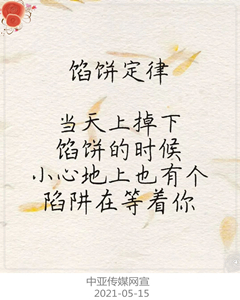 馅饼定律
当天上掉下
馅饼的时候
小心地上也有个
陷阱在等着你
中亚传媒网宣
2021-05-15